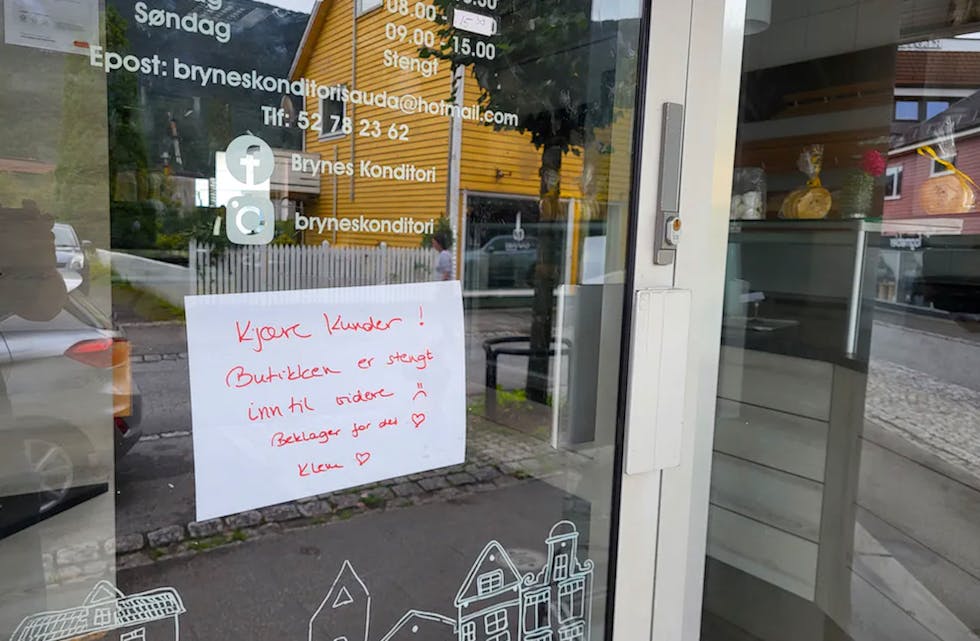 Søndag
08.00 -
15 30
09.00 - 15.00
Stengt
Epost: bryneskonditorisauda@hotmail.com
Tlf: 52 78 23 62
Brynes Konditori
bryneskonditori
Kjære Kunder !
Butikken er stengt
inntil videre
Beklager for det ♡
Klem ♡